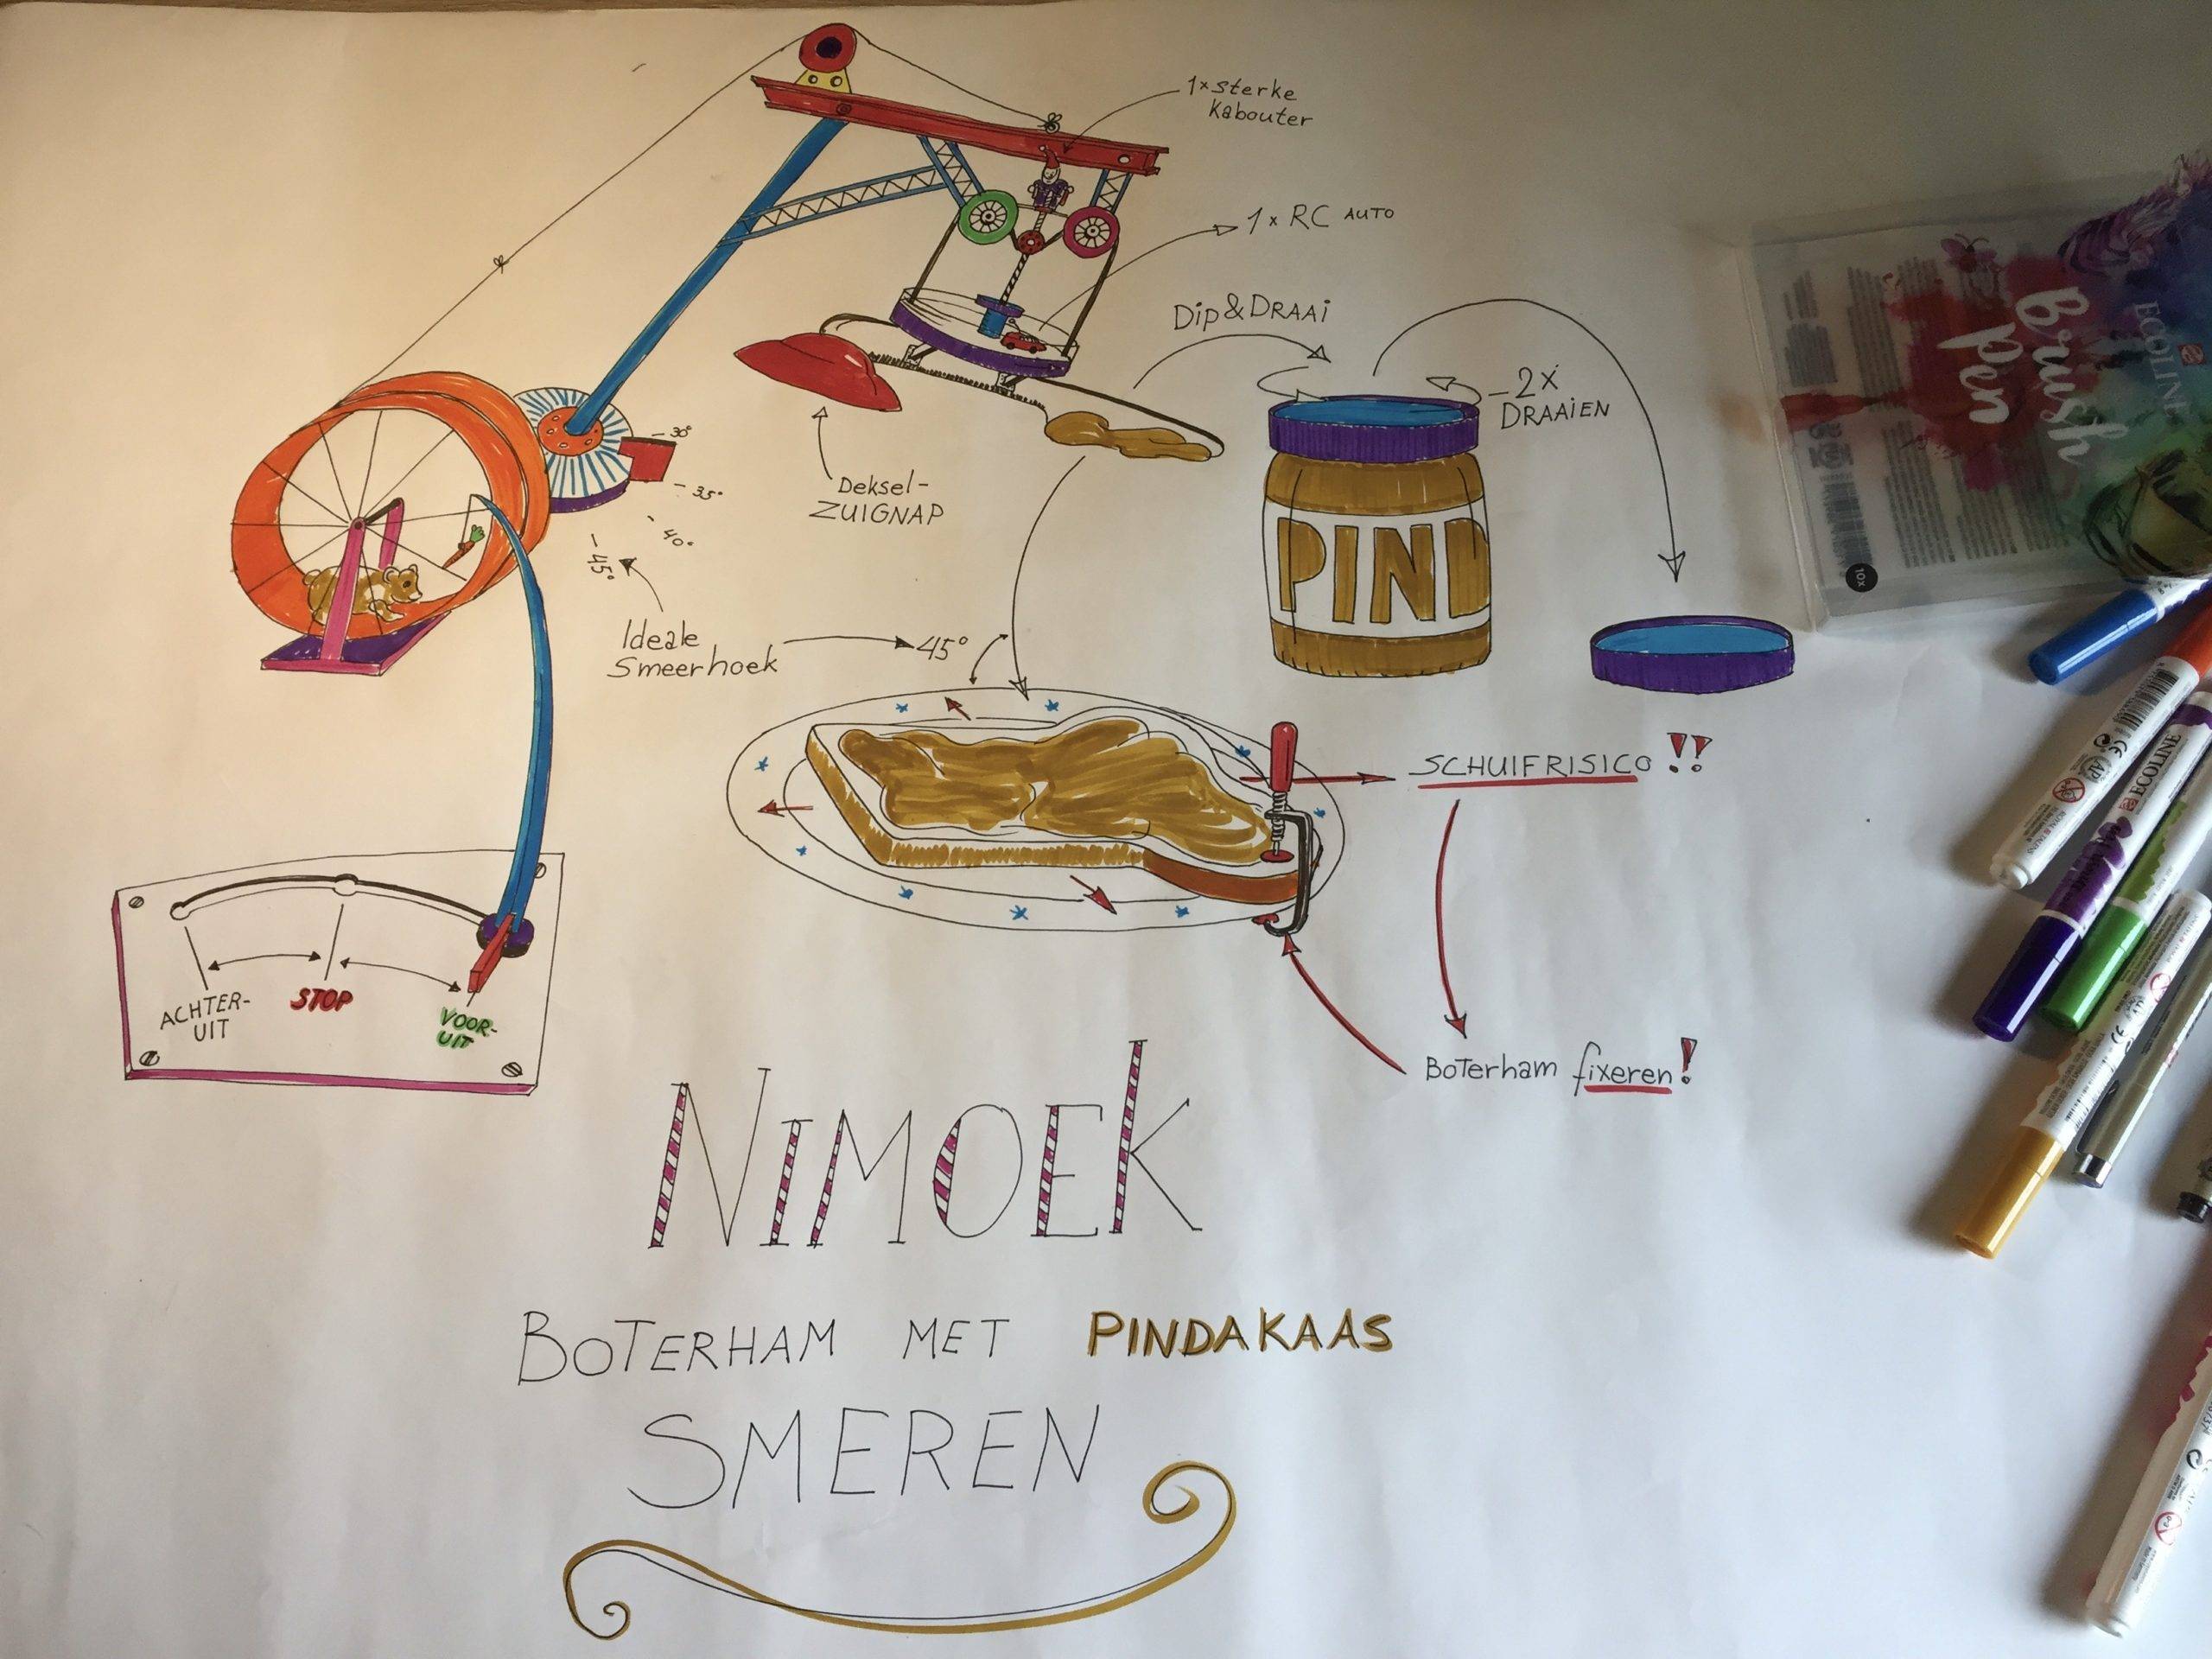 1x sterke
Kabouter
1x RC AUTO
Dip & DRAAI
2x
DRAAIEN
- 30°
- 35°
- 40°
- 45°
Deksel-
ZUIGNAP
Ideale
Smeerhoek
45°
PIND
SCHUIFRISICO !!
Boterham fixeren!
ACHTER-
UIT
STOP
VOOR-
UIT
NIMOEK
BOTERHAM MET PINDAKAAS
SMEREN
Brush
Pen
ECOLINE
10x
ECOLINE